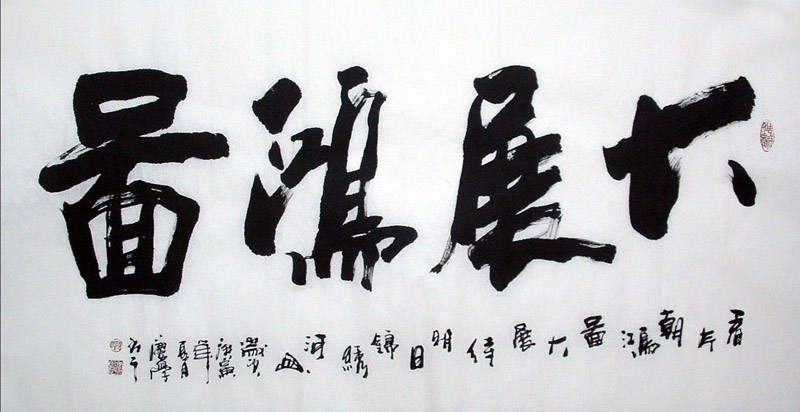 大展鴻圖
看今朝鴻圖大展待明日錦繡河山歲次庚寅年夏月慶學